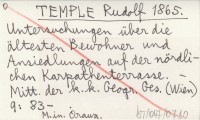 TEMPLE Rudolf 1865.
Untersuchungen über die
ältesten Bewohner und
Ansiedlungen auf der nördli-
chen Karpathenterrasse.
Mitt. der k. k. Geogr. Ges. (Wien)
9: 83-
M. im. Craux.